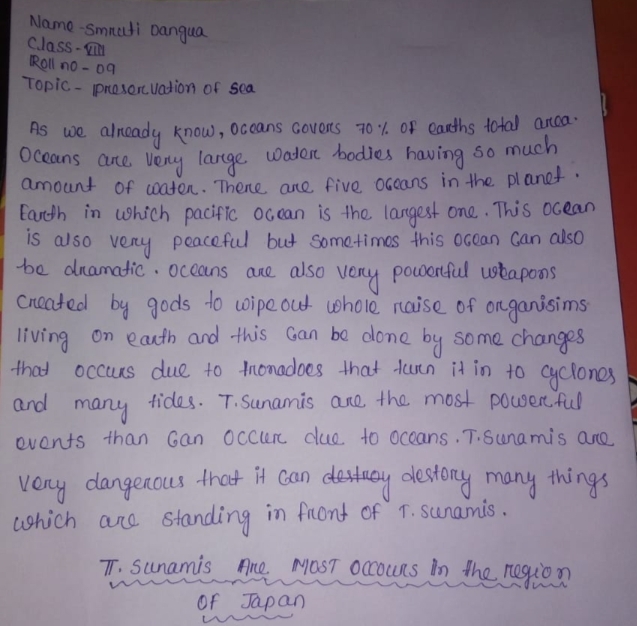 Name - Smruti Dangua
Class - VIII
Roll no - 09
Topic - preservation of sea
As we already know, Oceans covers 70% of earths total area.
Oceans are very large water bodies having so much
amount of water. There are five oceans in the planet.
Earth in which pacific ocean is the largest one. This ocean
is also very peaceful but sometimes this ocean can also
be dramatic. oceans are also very powerful weapons
created by gods to wipeout whole raise of organisims
living on earth and this can be done by some changes
that occurs due to tronadoes that turn it in to cyclones
and many tides. T.Sunamis are the most powerful
events than can occur due to oceans. T.Sunamis are
very dangerous that it can destroy destory many things
which are standing in front of T.sunamis.
T.sunamis Are MOST occours In the region
OF Japan